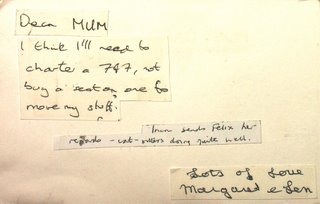 Dear MUM
I think I'll need to
charter a 747, not
buy a seat on one to
move my stuff.
sends Felix her
regards - doing quite well.
Lots of love
Margaret & Len